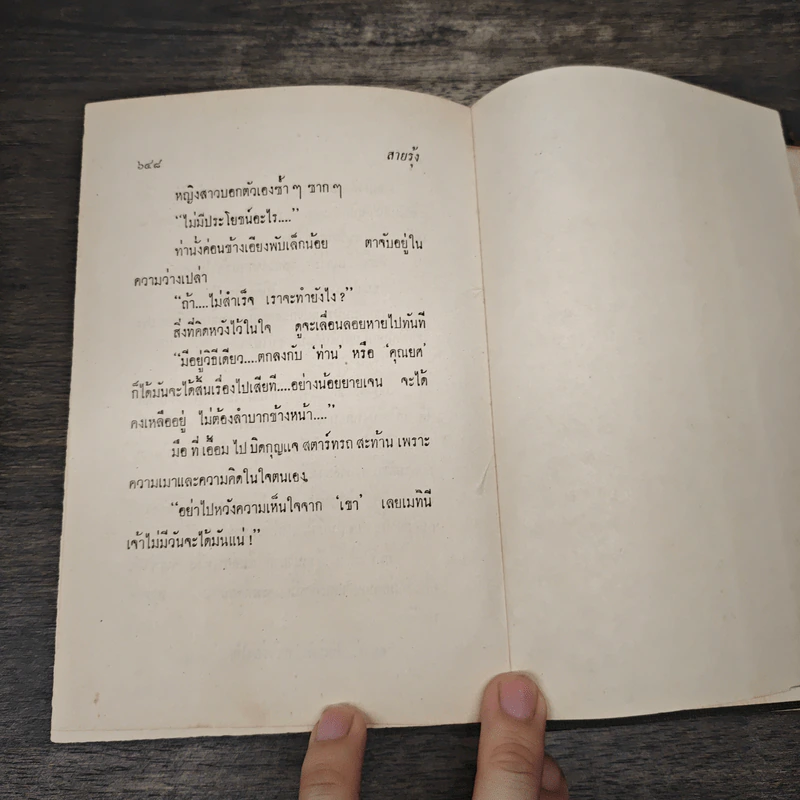 ๖๔๘ สายรุ้ง
หญิงสาวบอกตัวเองซ้ำ ๆ ซาก ๆ
“ไม่มีประโยชน์อะไร....”
ท่านั่งค่อนข้างเอียงพับเล็กน้อย ตาจับอยู่ใน
ความว่างเปล่า
“ถ้า....ไม่สำเร็จ เราจะทำยังไง ?”
สิ่งที่คิดหวังไว้ในใจ ดูจะเลื่อนลอยหายไปทันที
“มีอยู่วิธีเดียว....ตกลงกับ ‘ท่าน’ หรือ ‘คุณยศ’
ก็ได้มันจะได้สิ้นเรื่องไปเสียที....อย่างน้อยยายเจน จะได้
คงเหลืออยู่ ไม่ต้องลำบากข้างหน้า....”
มือ ที่ เอื้อม ไป บิดกุญแจ สตาร์ทรถ สะท้าน เพราะ
ความเมาและความคิดในใจตนเอง.
“อย่าไปหวังความเห็นใจจาก ‘เขา’ เลยเมทินี
เจ้าไม่มีวันจะได้มันแน่ !”